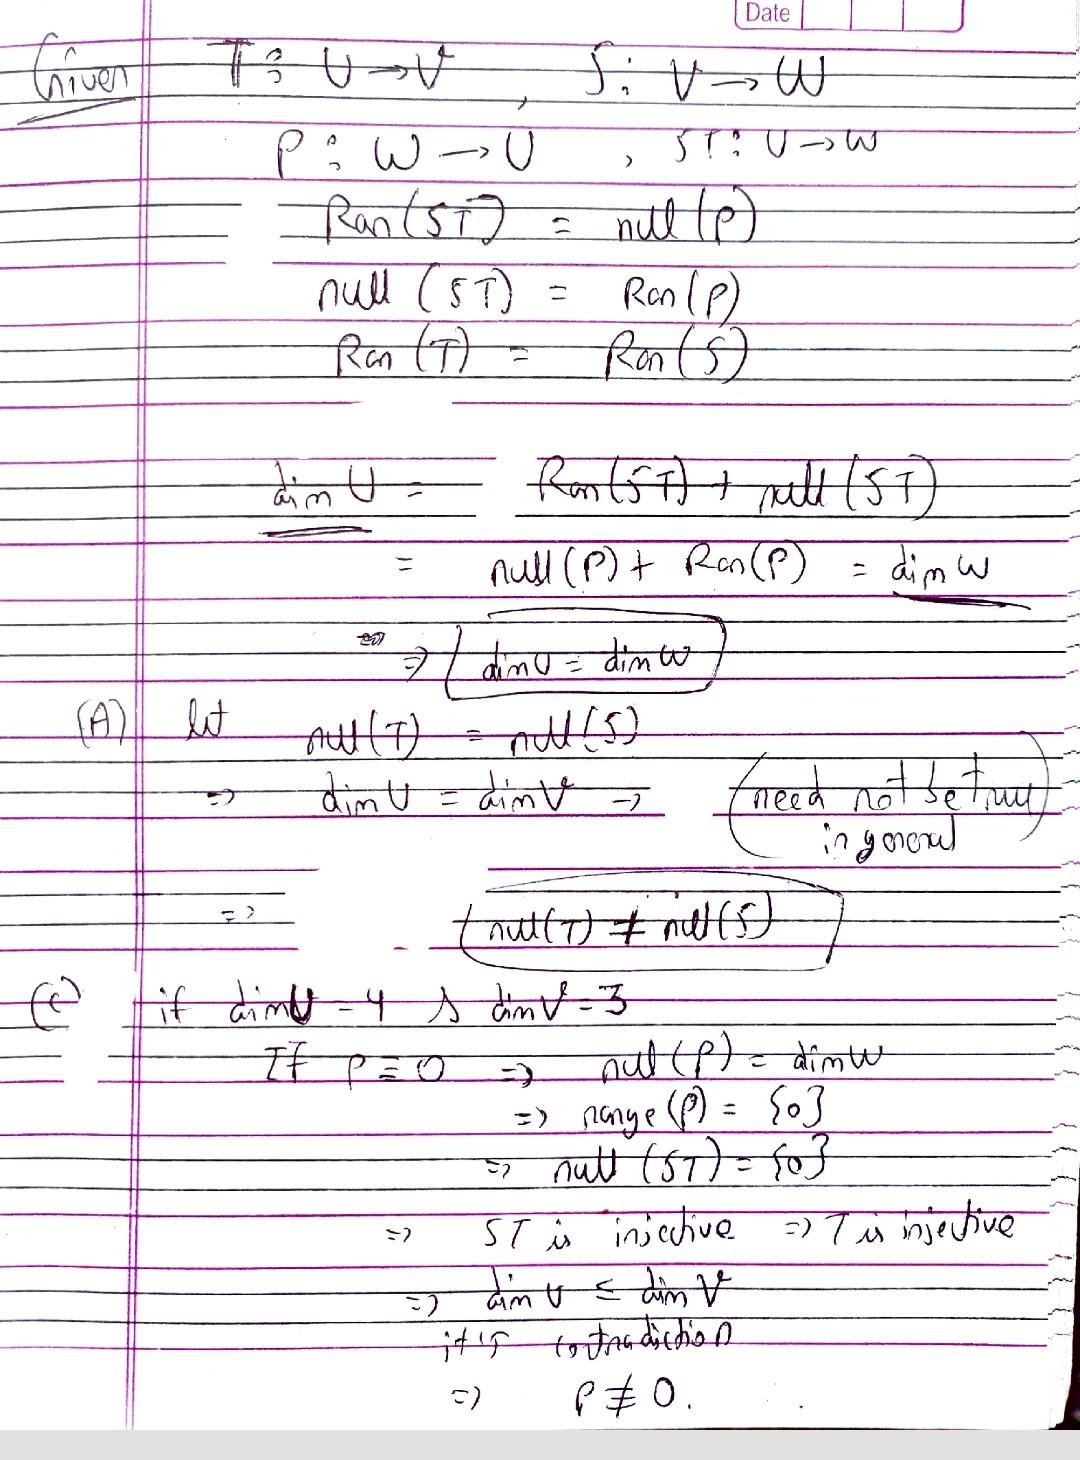 Date
Given T : U → V , S : V → W
P : W → U , ST : U → W
Ran(ST) = null(P)
null(ST) = Ran(P)
Ran(T) = Ran(S)
dim U = Ran(ST) + null(ST)
= null(P) + Ran(P) = dim W
⇒ dim U = dim W
(A) let null(T) = null(S)
⇒ dim U = dim V → (need not be true
in general)
⇒ null(T) ≠ null(S)
(c) if dim U = 4 & dim V = 3
If P ≡ 0 ⇒ nul(P) = dim W
⇒ range(P) = {0}
⇒ null(ST) = {0}
⇒ ST is injective ⇒ T is injective
⇒ dim U ≤ dim V
it's contradiction
⇒ P ≢ 0.